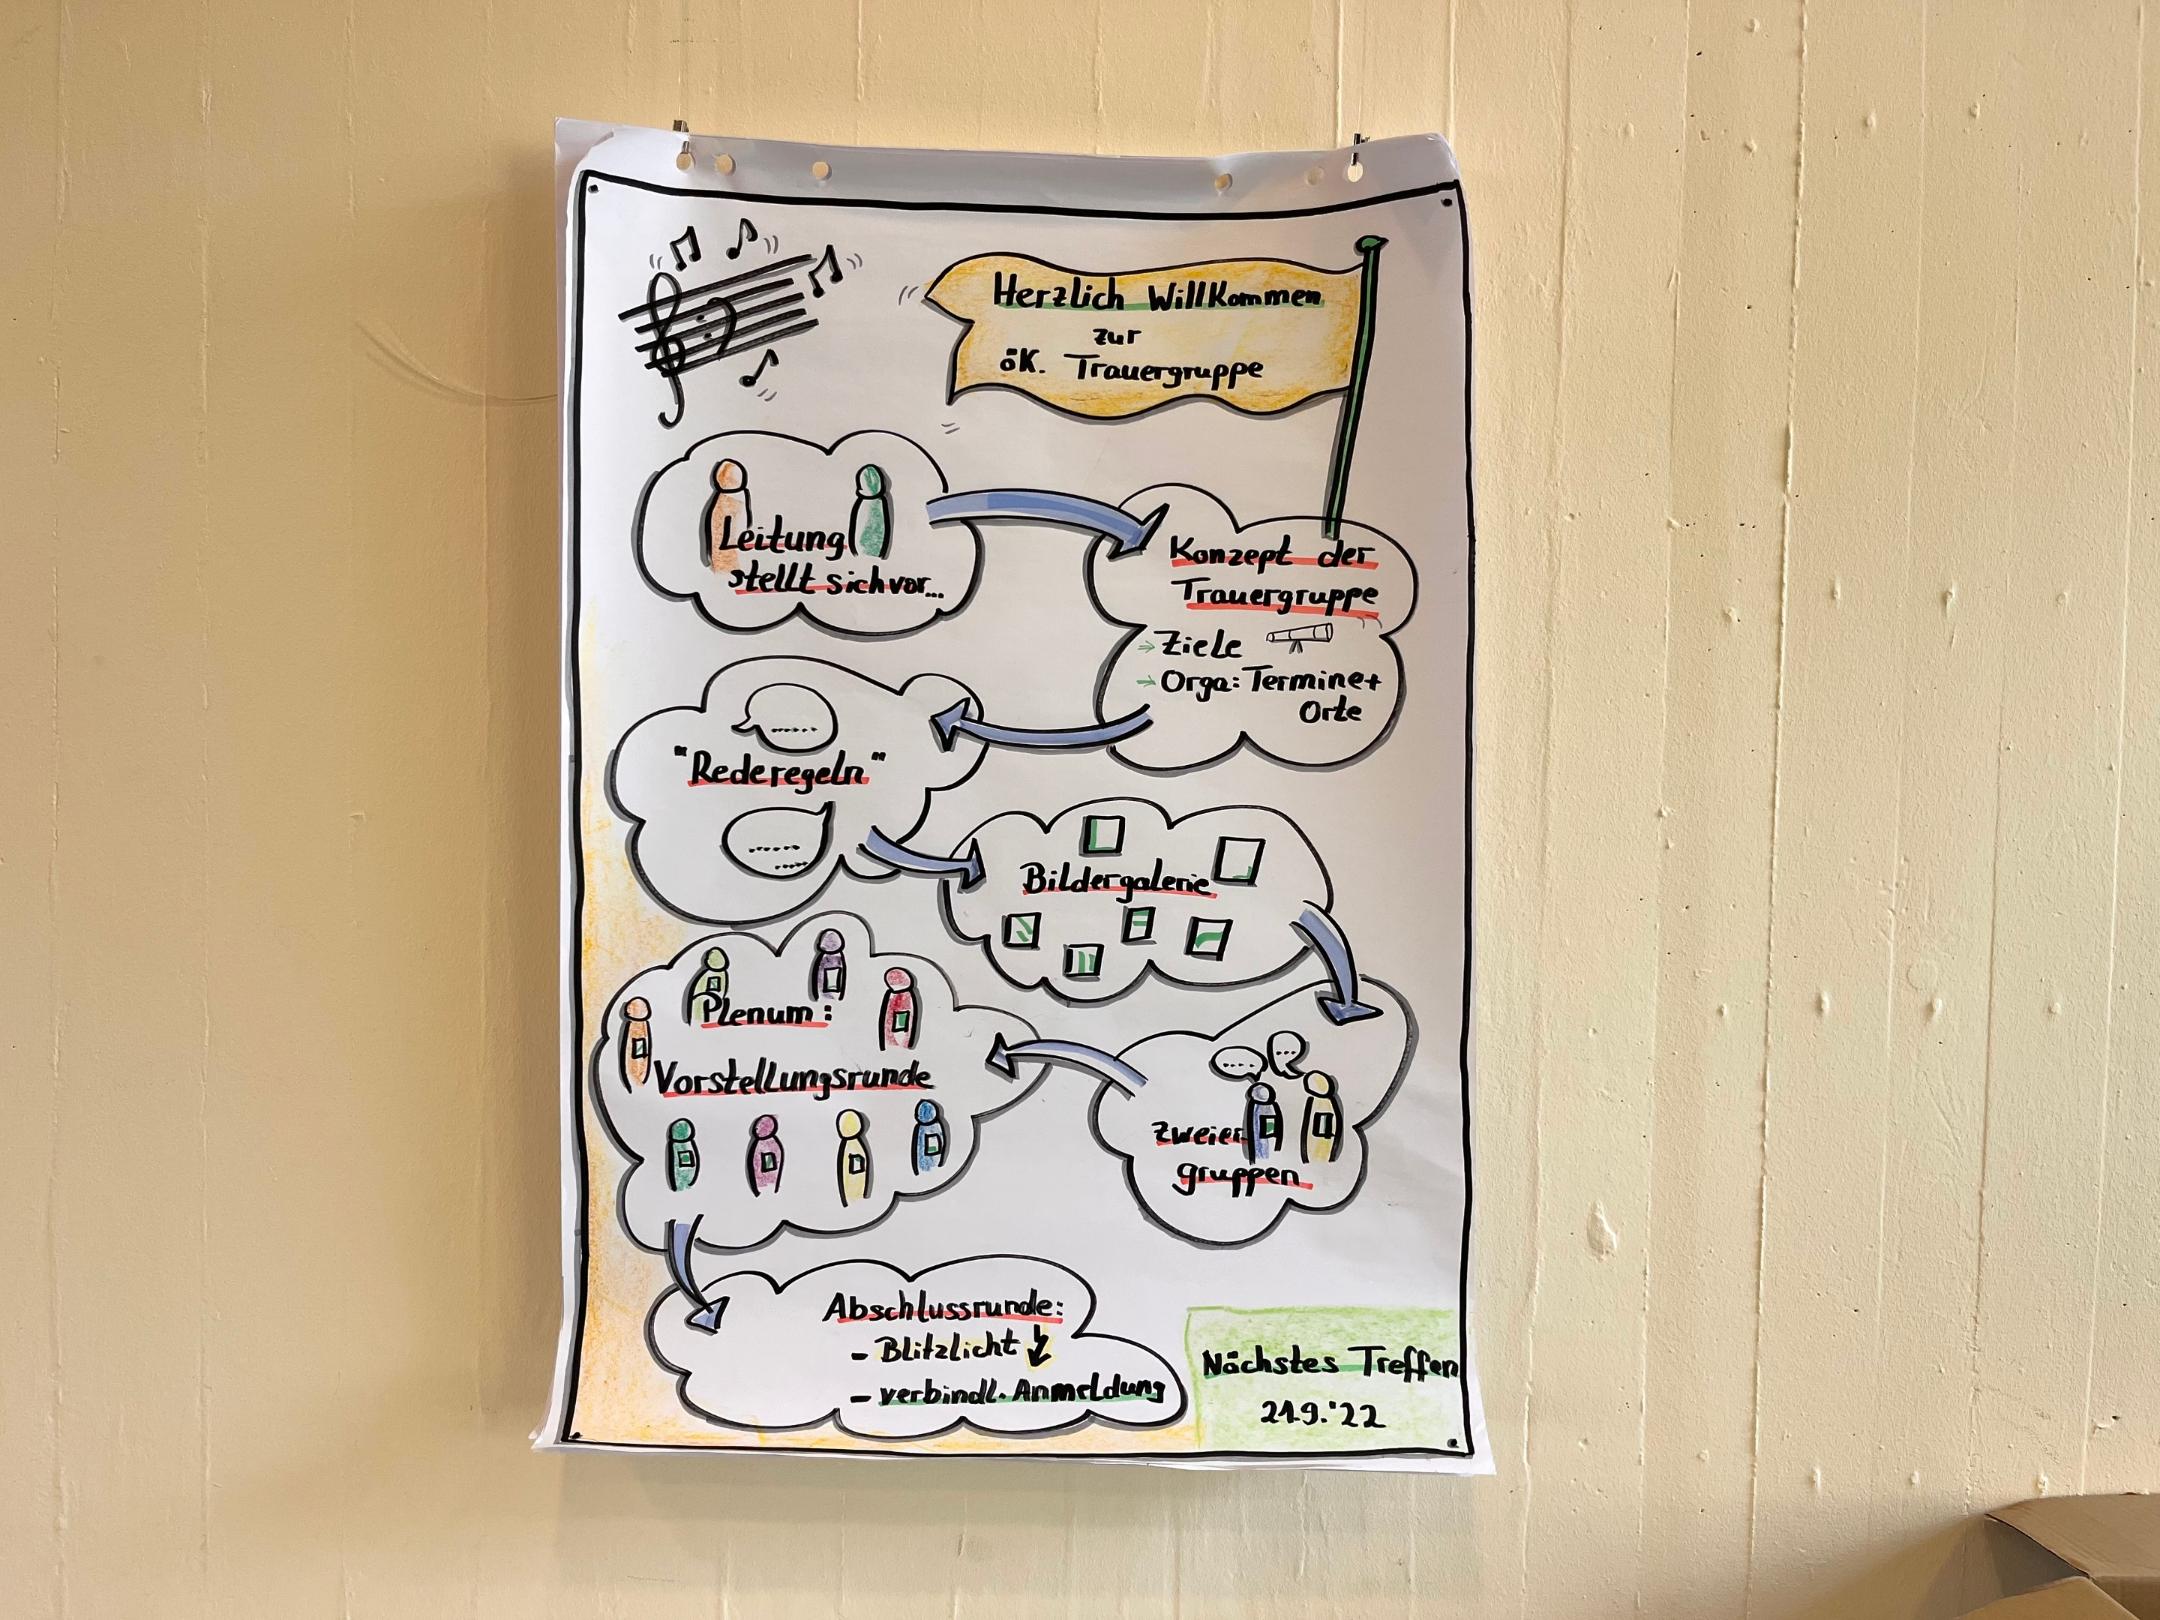 Herzlich Willkommen
zur
öK. Trauergruppe
Leitung
stellt sich vor...
Konzept der
Trauergruppe
→ Ziele
→ Orga: Termine+
Orte
"Rederegeln"
Bildergalerie
Zweier
gruppen
Plenum:
Vorstellungsrunde
Abschlussrunde:
- Blitzlicht
- verbindl. Anmeldung
Nächstes Treffen
21.9.'22